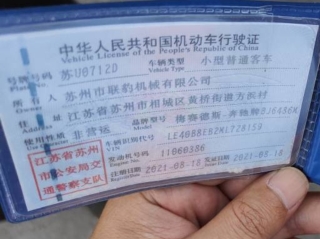 中华人民共和国机动车行驶证
Vehicle License of the People's Republic of China
号牌号码 苏U0712D 车辆类型 小型普通客车
Plate No. Vehicle Type
所有人 苏州市联豹机械有限公司
Owner
住址 江苏省苏州市相城区黄桥街道方浜村
Address
使用性质 非营运 品牌型号 梅赛德斯-奔驰牌BJ6486K
江苏省苏州
市公安局交
通警察支队
车辆识别代号
VIN
发动机号码 11060386
注册日期 2021-08-18 发证日期 2021-08-18
Register Date Issue Date